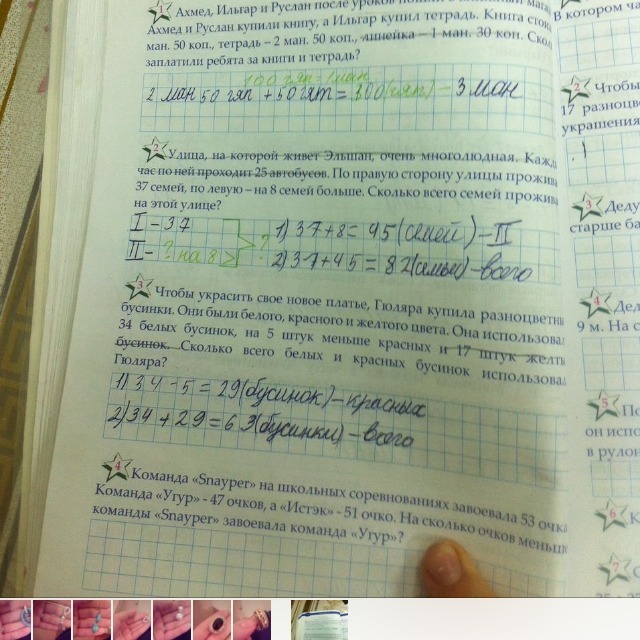 1 Ахмед, Ильгар и Руслан после уроков
Ахмед и Руслан купили книгу, а Ильгар купил тетрадь. Книга
ман. 50 коп., тетрадь – 2 ман. 50 коп., линейка – 1 ман. 30 коп.
заплатили ребята за книги и тетрадь?
100 гяп = 1 ман
2 ман 50 гяп + 50 гяп = 100 (гяп) – 3 ман
2 Улица, на которой живет Эльшан, очень многолюдная.
час по ней проходит 25 автобусов. По правую сторону улицы
37 семей, по левую – на 8 семей больше. Сколько всего семей
на этой улице?
I – 37
II – ? на 8 > ?
1) 37+8=45 (семей) – II
2) 37+45=82 (семьи) – всего
3 Чтобы украсить свое новое платье, Гюляра купила
бусинки. Они были белого, красного и желтого цвета. Она
34 белых бусинок, на 5 штук меньше красных и 17 штук
бусинок. Сколько всего белых и красных бусинок
Гюляра?
1) 34 – 5 = 29 (бусинок) – красных
2) 34 + 29 = 63 (бусинки) – всего
4 Команда «Snayper» на школьных соревнованиях завоевала 53
Команда «Угур» - 47 очков, а «Истэк» - 51 очко. На сколько очков
команды «Snayper» завоевала команда «Угур»?
В котором
2 Чтобы
17
украшения
3 Деду
старше
4
9 м. На
5
он
в рулон
6
7